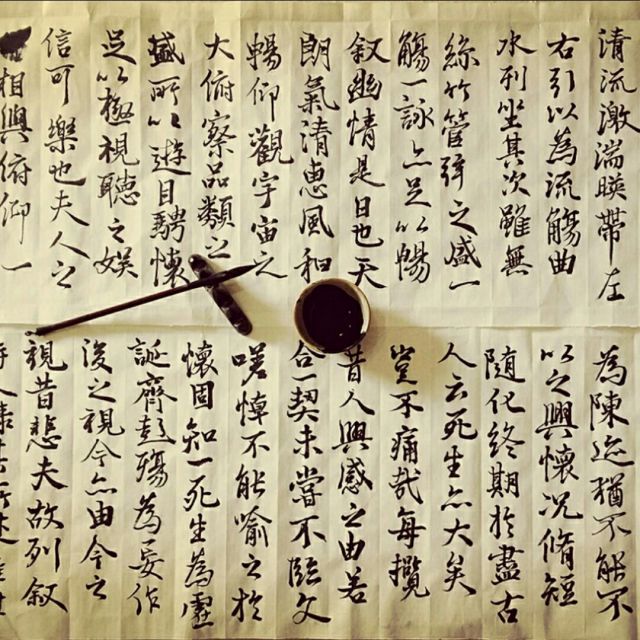 清流激湍暎帶左
右引以為流觴曲
水列坐其次雖無
絲竹管弦之盛一
觴一詠亦足以暢
叙幽情是日也天
朗氣清惠風和
暢仰觀宇宙之
大俯察品類之
盛所以遊目騁懷
足以極視聽之娛
信可樂也夫人之
相與俯仰一
為陳迹猶不能不
以之興懷況脩短
隨化終期於盡古
人云死生亦大矣
豈不痛哉每攬
昔人興感之由若
合一契未嘗不臨文
嗟悼不能喻之於
懷固知一死生為虛
誕齊彭殤為妄作
後之視今亦由今之
視昔悲夫故列叙